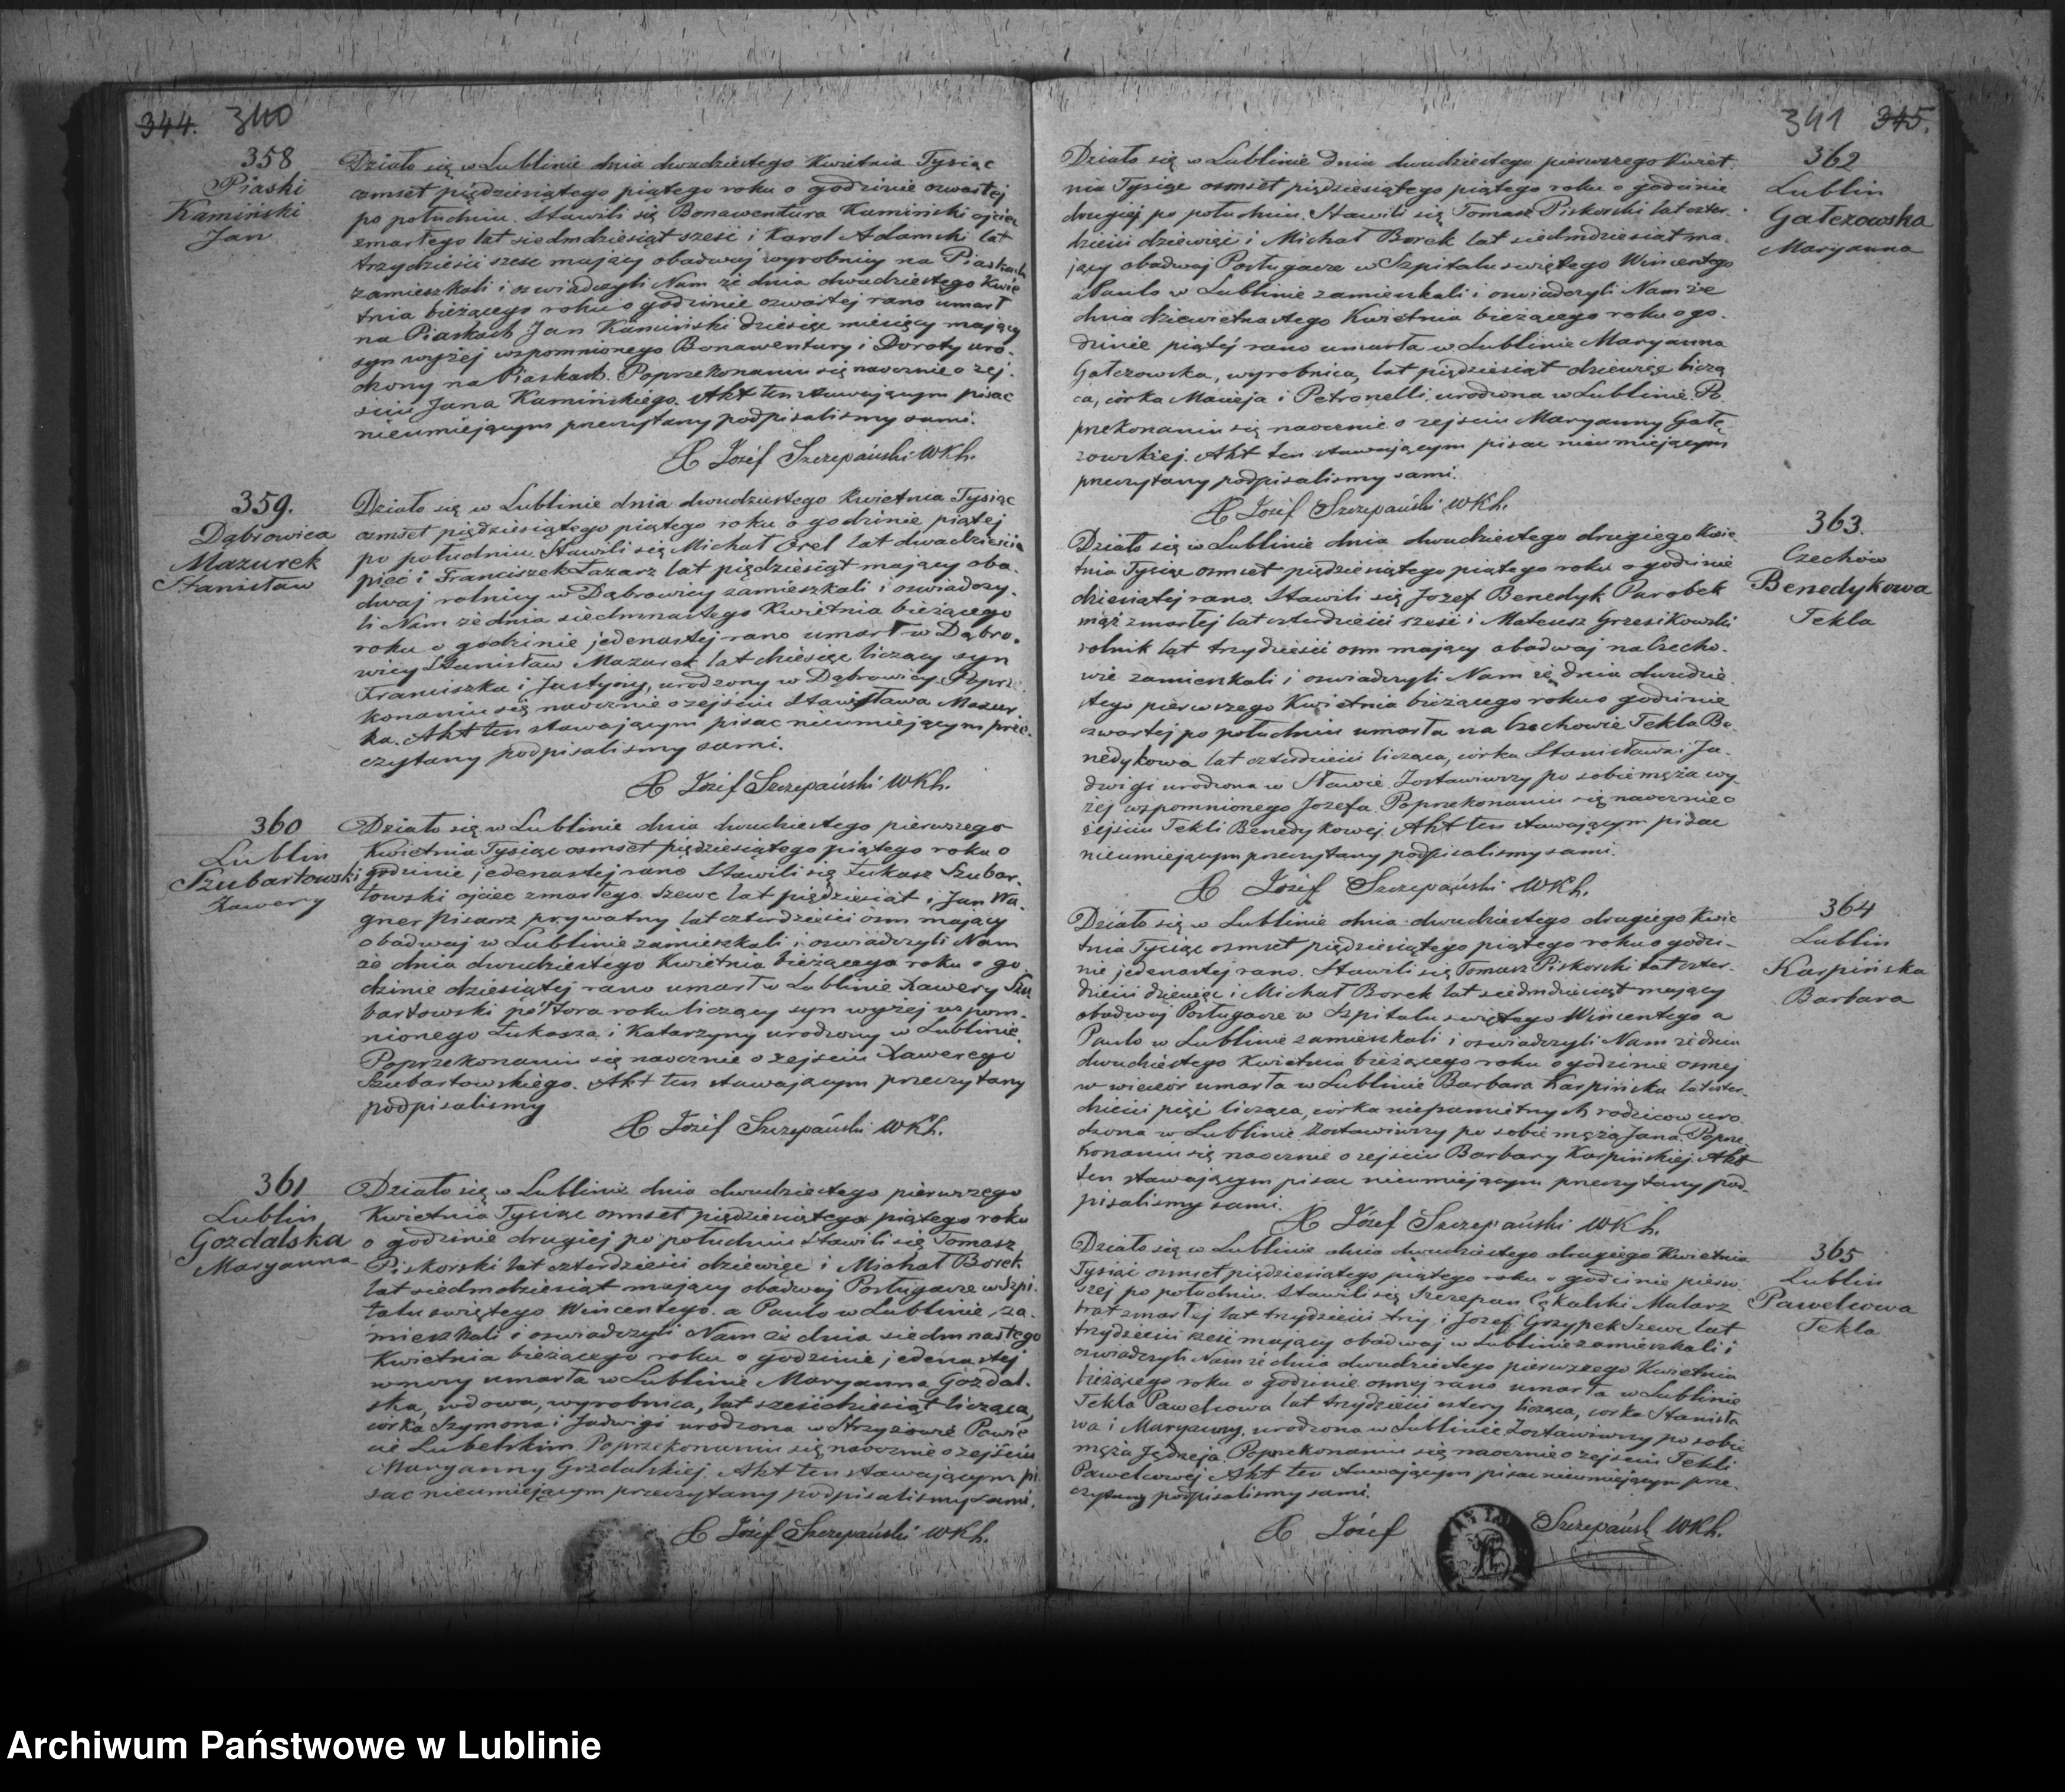 344. 340
358
Piaski
Kamiński
Jan
Działo się w Lublinie dnia dwudziestego Kwietnia Tysiąc
osmset pięćdziesiątego piątego roku o godzinie czwartej
po południu. Stawili się Bonawentura Kamiński ojciec
zmarłego lat siedmdziesiąt sześć i Karol Adamski lat
trzydzieści sześć mający obadwaj wyrobnicy na Piaskach
zamieszkali i oswiadczyli Nam że dnia dwudziestego Kwie
tnia bieżącego roku o godzinie czwartej rano umarł
na Piaskach Jan Kamiński dziesięć miesięcy mający
syn wyżej wspomnionego Bonawentury i Doroty uro-
dzony na Piaskach. Poprzekonaniu się naocznie o zej-
ściu Jana Kamińskiego. Akt ten stawającym pisać
nieumiejącym przeczytany podpisalismy sami.
X Józef Szczepański WKh.
359.
Dąbrowica
Mazurek
Stanisław
Działo się w Lublinie dnia dwudziestego Kwietnia Tysiąc
osmset pięćdziesiątego piątego roku o godzinie piątej
po południu. Stawili się Michał Orel lat dwadzieścia
pięć i Franciszek Łazarz lat pięćdziesiąt mający oba-
dwaj rolnicy w Dąbrowicy zamieszkali i oswiadczy-
li Nam że dnia siedmnastego Kwietnia bieżącego
roku o godzinie jedenastej rano umarł w Dąbro-
wicy Stanisław Mazurek lat dziesięć liczący syn
Franciszka i Justyny, urodzony w Dąbrowicy. Poprze
konaniu się naocznie o zejściu Stanisława Mazur
ka. Akt ten stawającym pisać nieumiejącym prze-
czytany podpisalismy sami.
X Józef Szczepański WKh.
360
Lublin
Szubartowski
Xawery
Działo się w Lublinie dnia dwudziestego pierwszego
Kwietnia Tysiąc osmset pięćdziesiątego piątego roku o
godzinie jedenastej rano Stawili się Łukasz Szubar-
towski ojciec zmarłego Szewc lat pięćdziesiąt i Jan Wa-
gner pisarz prywatny lat czterdzieści osm mający
obadwaj w Lublinie zamieszkali i oswiadczyli Nam
że dnia dwudziestego Kwietnia bieżącego roku o go
dzinie dziesiątej rano umarł w Lublinie Xawery Szu
bartowski półtora roku liczący syn wyżej wspom-
nionego Łukasza i Katarzyny urodzony w Lublinie.
Poprzekonaniu się naocznie o zejściu Xawerego
Szubartowskiego. Akt ten stawającym przeczytany
podpisalismy
X Józef Szczepański WKh.
361
Lublin
Gozdalska
Maryanna
Działo się w Lublinie dnia dwudziestego pierwszego
Kwietnia Tysiąc osmset pięćdziesiątego piątego roku
o godzinie drugiej po południu Stawili się Tomasz
Piskorski lat czterdzieści dziewięć i Michał Borek
lat siedmdziesiąt mający obadwaj Posługacze w Szpi-
talu świętego Wincentego a Paulo w Lublinie, za-
mieszkali i oswiadczyli Nam że dnia siedmnastego
Kwietnia bieżącego roku o godzinie jedenastej
w nocy umarła w Lublinie Maryanna Gozdal-
ska, wdowa, wyrobnica, lat sześćdziesiąt licząca,
córka Szymona i Jadwigi urodzona w Strzyżowie Powie
cie Lubelskim. Poprzekonaniu się naocznie o zejściu
Maryanny Gozdalskiej. Akt ten stawającym pi
sać nieumiejącym przeczytany podpisalismy sami.
X Józef Szczepański WKh.
341 345.
362
Lublin
Gałczowska
Maryanna
Działo się w Lublinie dnia dwudziestego pierwszego Kwiet-
nia Tysiąc osmset pięćdziesiątego piątego roku o godzinie
drugiej po południu. Stawili się Tomasz Piskorski lat czter-
dzieści dziewięć i Michał Borek lat siedmdziesiat ma-
jący obadwaj Posługacze w Szpitalu świętego Wincentego
a Paulo w Lublinie zamieszkali i oswiadczyli Nam że
dnia dziewietnastego Kwietnia bieżącego roku o go-
dzinie piątej rano umarła w Lublinie Maryanna
Gałczowska, wyrobnica, lat pięćdziesiąt dziewięć liczą
ca, córka Macieja i Petronelli urodzona w Lublinie. Po
przekonaniu się naocznie o zejściu Maryanny Gałc
zowskiej. Akt ten stawającym pisać nieumiejącym
przeczytany podpisalismy sami.
X Józef Szczepański WKh.
363.
Czechów
Benedykowa
Tekla
Działo się w Lublinie dnia dwudziestego drugiego Kwie
tnia Tysiąc osmset pięćdziesiątego piątego roku o godzinie
dziesiątej rano. Stawili się Jozef Benedyk Parobek
mąż zmarłej lat czterdzieści sześć i Mateusz Grzesikowski
rolnik lat trzydzieści osm mający obadwaj na Czecho-
wie zamieszkali i oswiadczyli Nam że dnia dwudzie
stego pierwszego Kwietnia bieżącego roku o godzinie
czwartej po południu umarła na Czechowie Tekla Be-
nedykowa lat czterdzieści licząca, córka Stanisława i Ja-
dwigi urodzona w Sławie. Zostawiwszy po sobie męża wy-
żej wspomnionego Jozefa. Poprzekonaniu się naocznie o
zejściu Tekli Benedykowej. Akt ten stawającym pisać
nieumiejącym przeczytany podpisalismy sami.
X Józef Szczepański WKh.
364
Lublin
Karpińska
Barbara
Działo się w Lublinie dnia dwudziestego drugiego Kwie
tnia Tysiąc osmset pięćdziesiątego piątego roku o godzi-
nie jedenastej rano. Stawili się Tomasz Piskorski lat czter-
dzieści dziewięć i Michał Borek lat siedmdziesiąt mający
obadwaj Posługacze w Szpitalu świętego Wincentego a
Paulo w Lublinie zamieszkali i oswiadczyli Nam że dnia
dwudziestego Kwietnia bieżącego roku o godzinie osmej
w wieczór umarła w Lublinie Barbara Karpińska lat czter-
dzieści pięć licząca, córka niepamiętnych rodziców uro-
dzona w Lublinie Zostawiwszy po sobie męża Jana. Poprze
konaniu się naocznie o zejściu Barbary Karpińskiej. Akt
ten stawającym pisać nieumiejącym przeczytany pod-
pisalismy sami.
X Józef Szczepański WKh.
365
Lublin
Pawelcowa
Tekla
Działo się w Lublinie dnia dwudziestego drugiego Kwietnia
Tysiąc osmset pięćdziesiątego piątego roku o godzinie pierw-
szej po południu. Stawili się Szczepan Cękalski Mularz
brat zmarłej lat trzydzieści trzy i Jozef Grzypek Szewc lat
trzydzieści sześć mający obadwaj w Lublinie zamieszkali i
oswiadczyli Nam że dnia dwudziestego pierwszego Kwietnia
bieżącego roku o godzinie osmej rano umarła w Lublinie
Tekla Pawelcowa lat trzydzieści cztery licząca, córka Stanisła
wa i Maryanny, urodzona w Lublinie Zostawiwszy po sobie
męża Jędrzeja. Poprzekonaniu się naocznie o zejściu Tekli
Pawelcowej Akt ten stawającym pisać nieumiejącym prze-
czytany podpisalismy sami.
X Józef Szczepański WKh.
Archiwum Państwowe w Lublinie